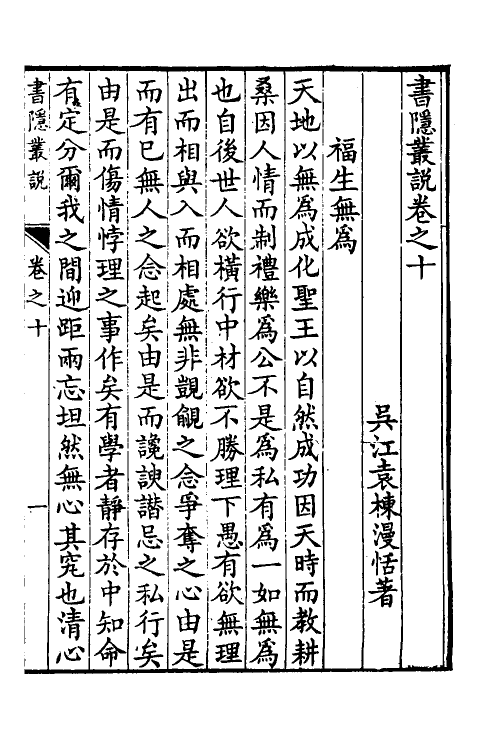 書隱叢說卷之十
吳江袁棟漫恬著
福生無爲
天地以無爲成化聖王以自然成功因天時而教耕
桑因人情而制禮樂爲公不是爲私有爲一如無爲
也自後世人欲橫行中材欲不勝理下愚有欲無理
出而相與入而相處無非覬覦之念爭奪之心由是
而有已無人之念起矣由是而讒諛譖忌之私行矣
由是而傷情悖理之事作矣有學者靜存於中知命
有定分爾我之間迎距兩忘坦然無心其究也清心
書隱叢説
卷之十
一